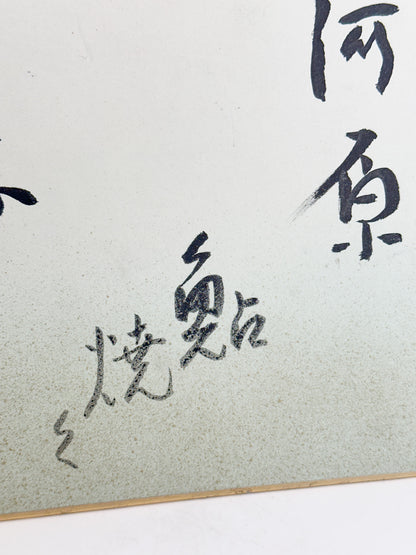 河原
鮎
焼